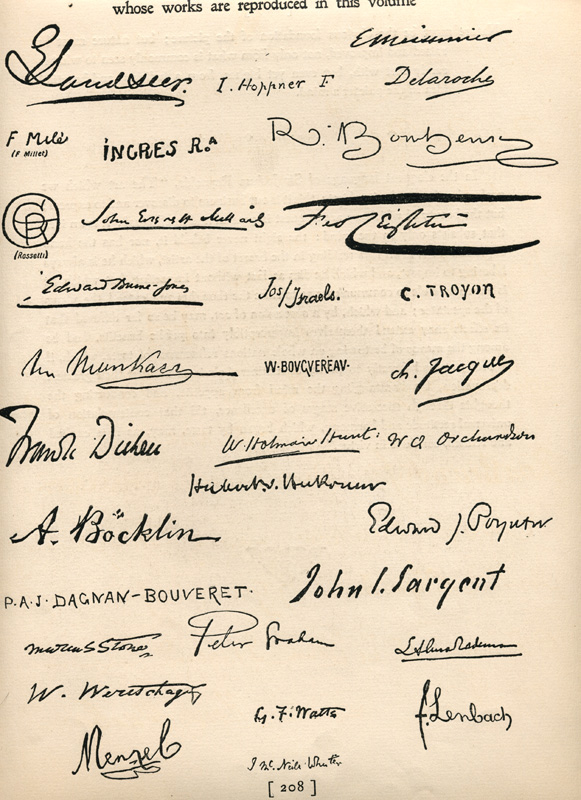 whose works are reproduced in this volume
E Landseer.
E Meissonier
I. Hoppner F
Delaroche
F Mile
(F Millet)
INGRES R.A
R. Bonheur
(Rossetti)
John Everett Millais
Fred Leighton
Edward Burne-Jones
Jos/Israels.
C. TROYON
M Munkacsy
W. BOVGVEREAV.
ch. Jacque
Frank Dicksee
W. Holman Hunt.
W Q Orchardson
Hubert v. Herkomer
A. Böcklin
Edward J. Poynter
P.A.J. DAGNAN-BOUVERET.
John S. Sargent
Marcus Stone
Peter Graham
L Alma Tadema
W. Werestchagin
G. F. Watts
f. Lenbach
Menzel
J Mc. Neill Whistler
[ 208 ]